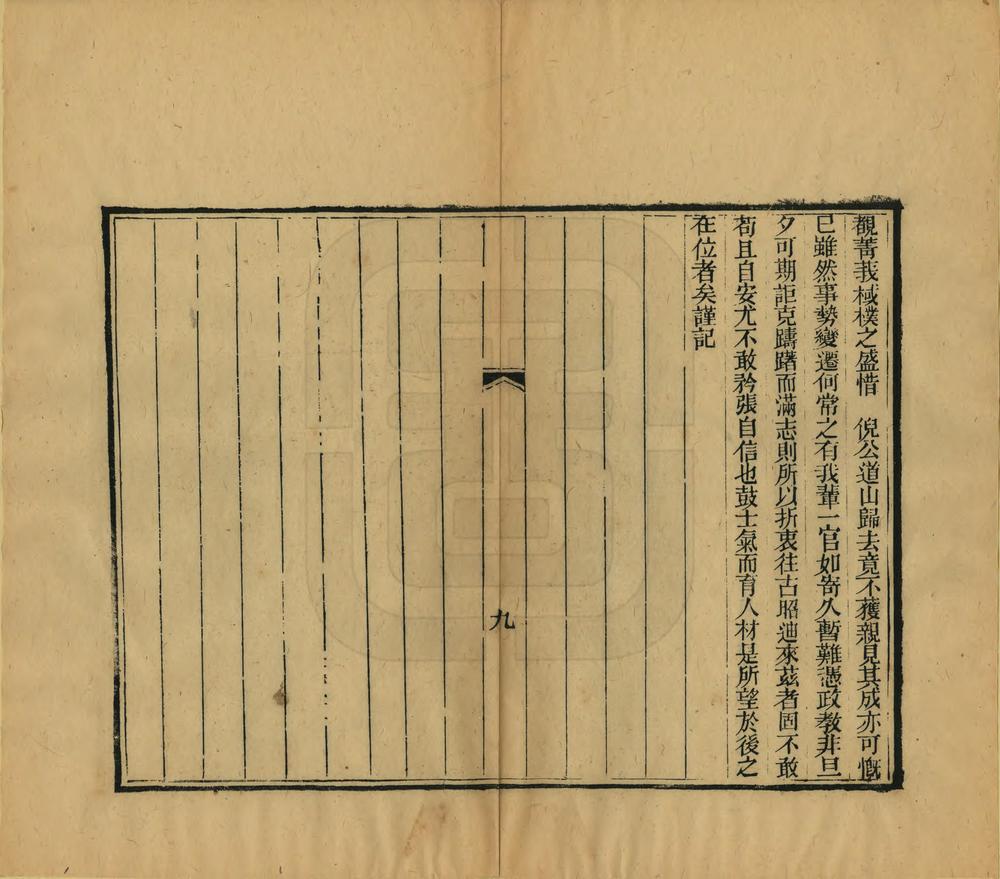 觀菁莪棫樸之盛惜　倪公道山歸去竟不獲親見其成亦可慨
已雖然事勢變遷何常之有我輩一官如寄久暫難憑政敎非旦
夕可期詎克躊躇而滿志則所以折衷往古昭迪來茲者固不敢
苟且自安尤不敢矜張自信也鼓士氣而育人材是所望於後之
在位者矣謹記
九